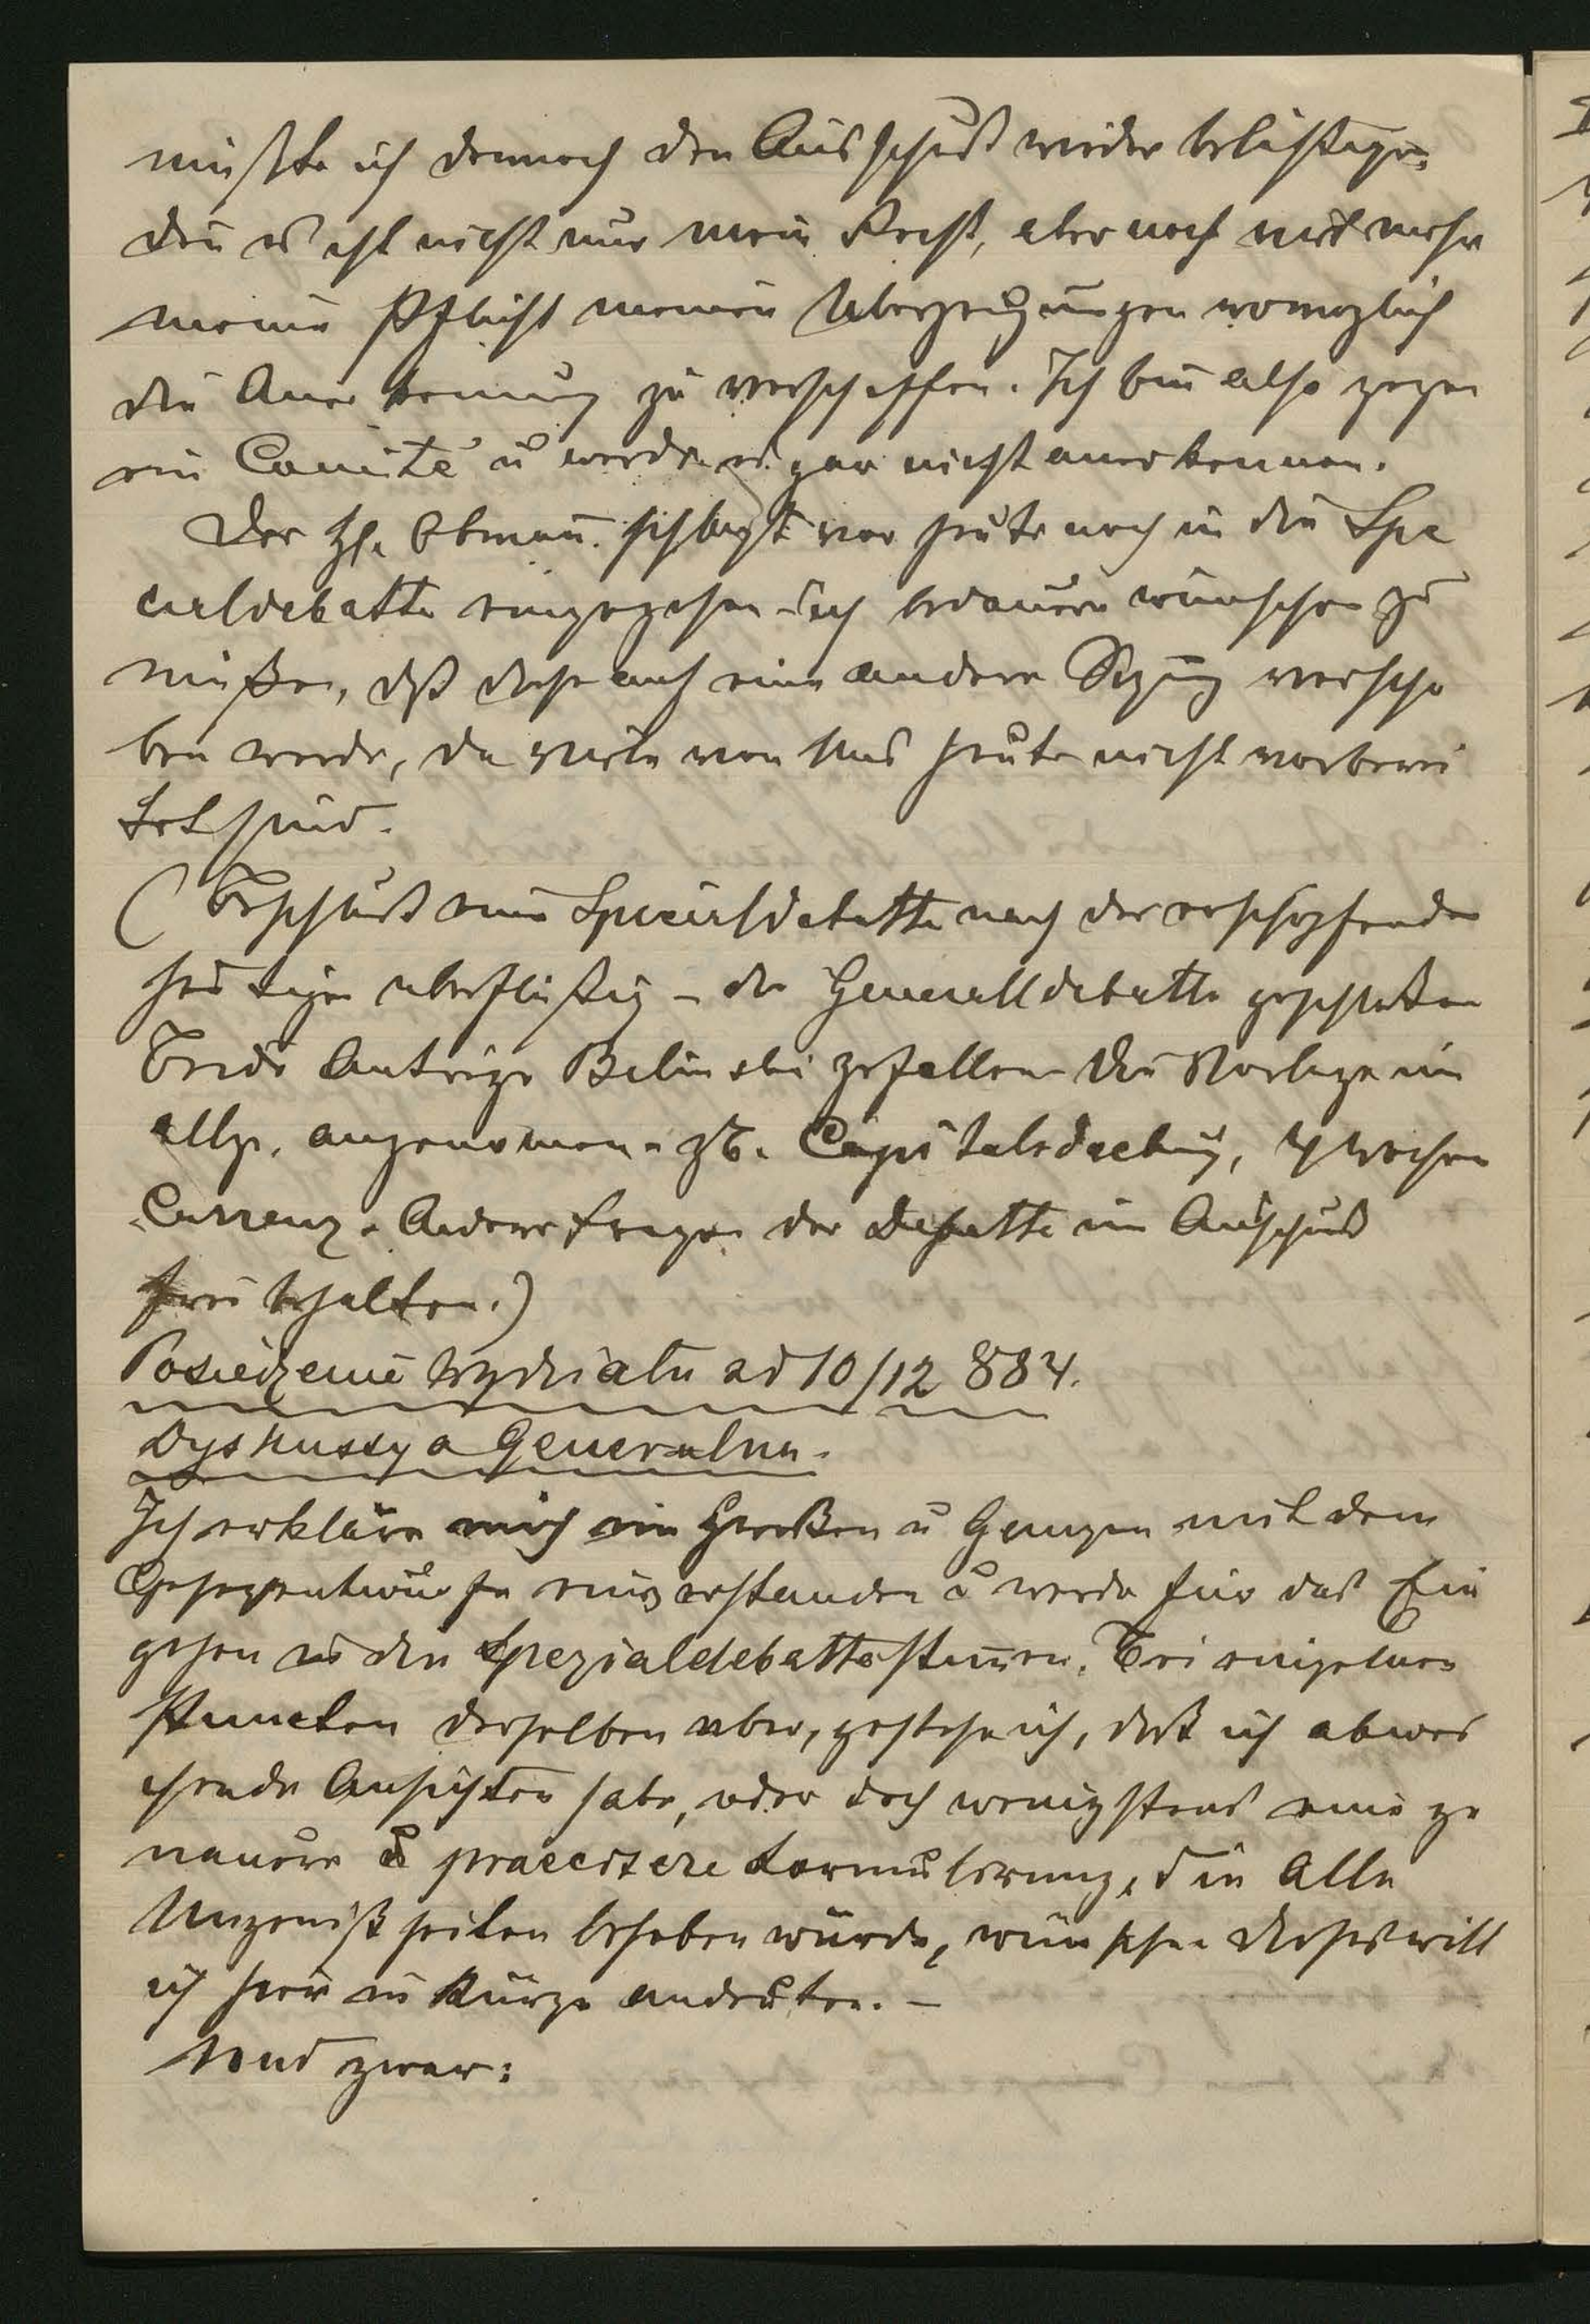 müßte ich dennoch den Ausschuß wieder belästigen,
den es ist nicht nur mein Recht, aber noch mit mehr
meine Pflicht meinen Überzeugungen womöglich
die Anerkennung zu verschaffen. Ich bin also gegen
ein Comité u werde es gar nicht anerkennen.
Der H. Obmann schlagt vor heute noch in die Spe
cialdebatte einzugehen – ich bedauere wünschen zu
müßen, dß diese auf eine andere Sitzung verscho
ben werde, da viele von Uns heute nicht vorberei
tet sind.
(Beschluß eine Specialdebatte nach der erschöpfenden
heutigen uberflüßig – die Generaldebatte geschloßen
Beide Antrage Bilinski gefallen die Vorlage im
allg. angenomen – zB. Capitalsdeckung, 4 Wochen
Carrenz. Andere Fragen der Debatte im Auschuß
frei behalten.)
Posiedzenie wydziału ad 10/12 884.
Dyskussya Generalna.
Ich erkläre mich im Großen u Ganzen mit dem
Gesetzentwurfe einverstanden u werde für das Ein
gehen in die Spezialdebatte stimen. Bei einzelnen
Puncten derselben aber, gestehe ich, daß ich abwei
chende Ansichten habe, oder doch wenigstens eine ge
nauere u praecisere Formulirung, die Alle
Ungewißheiten beheben würde, wünsche. Dieses will
ich hier in Kürze andeuten. –
Und zwar: